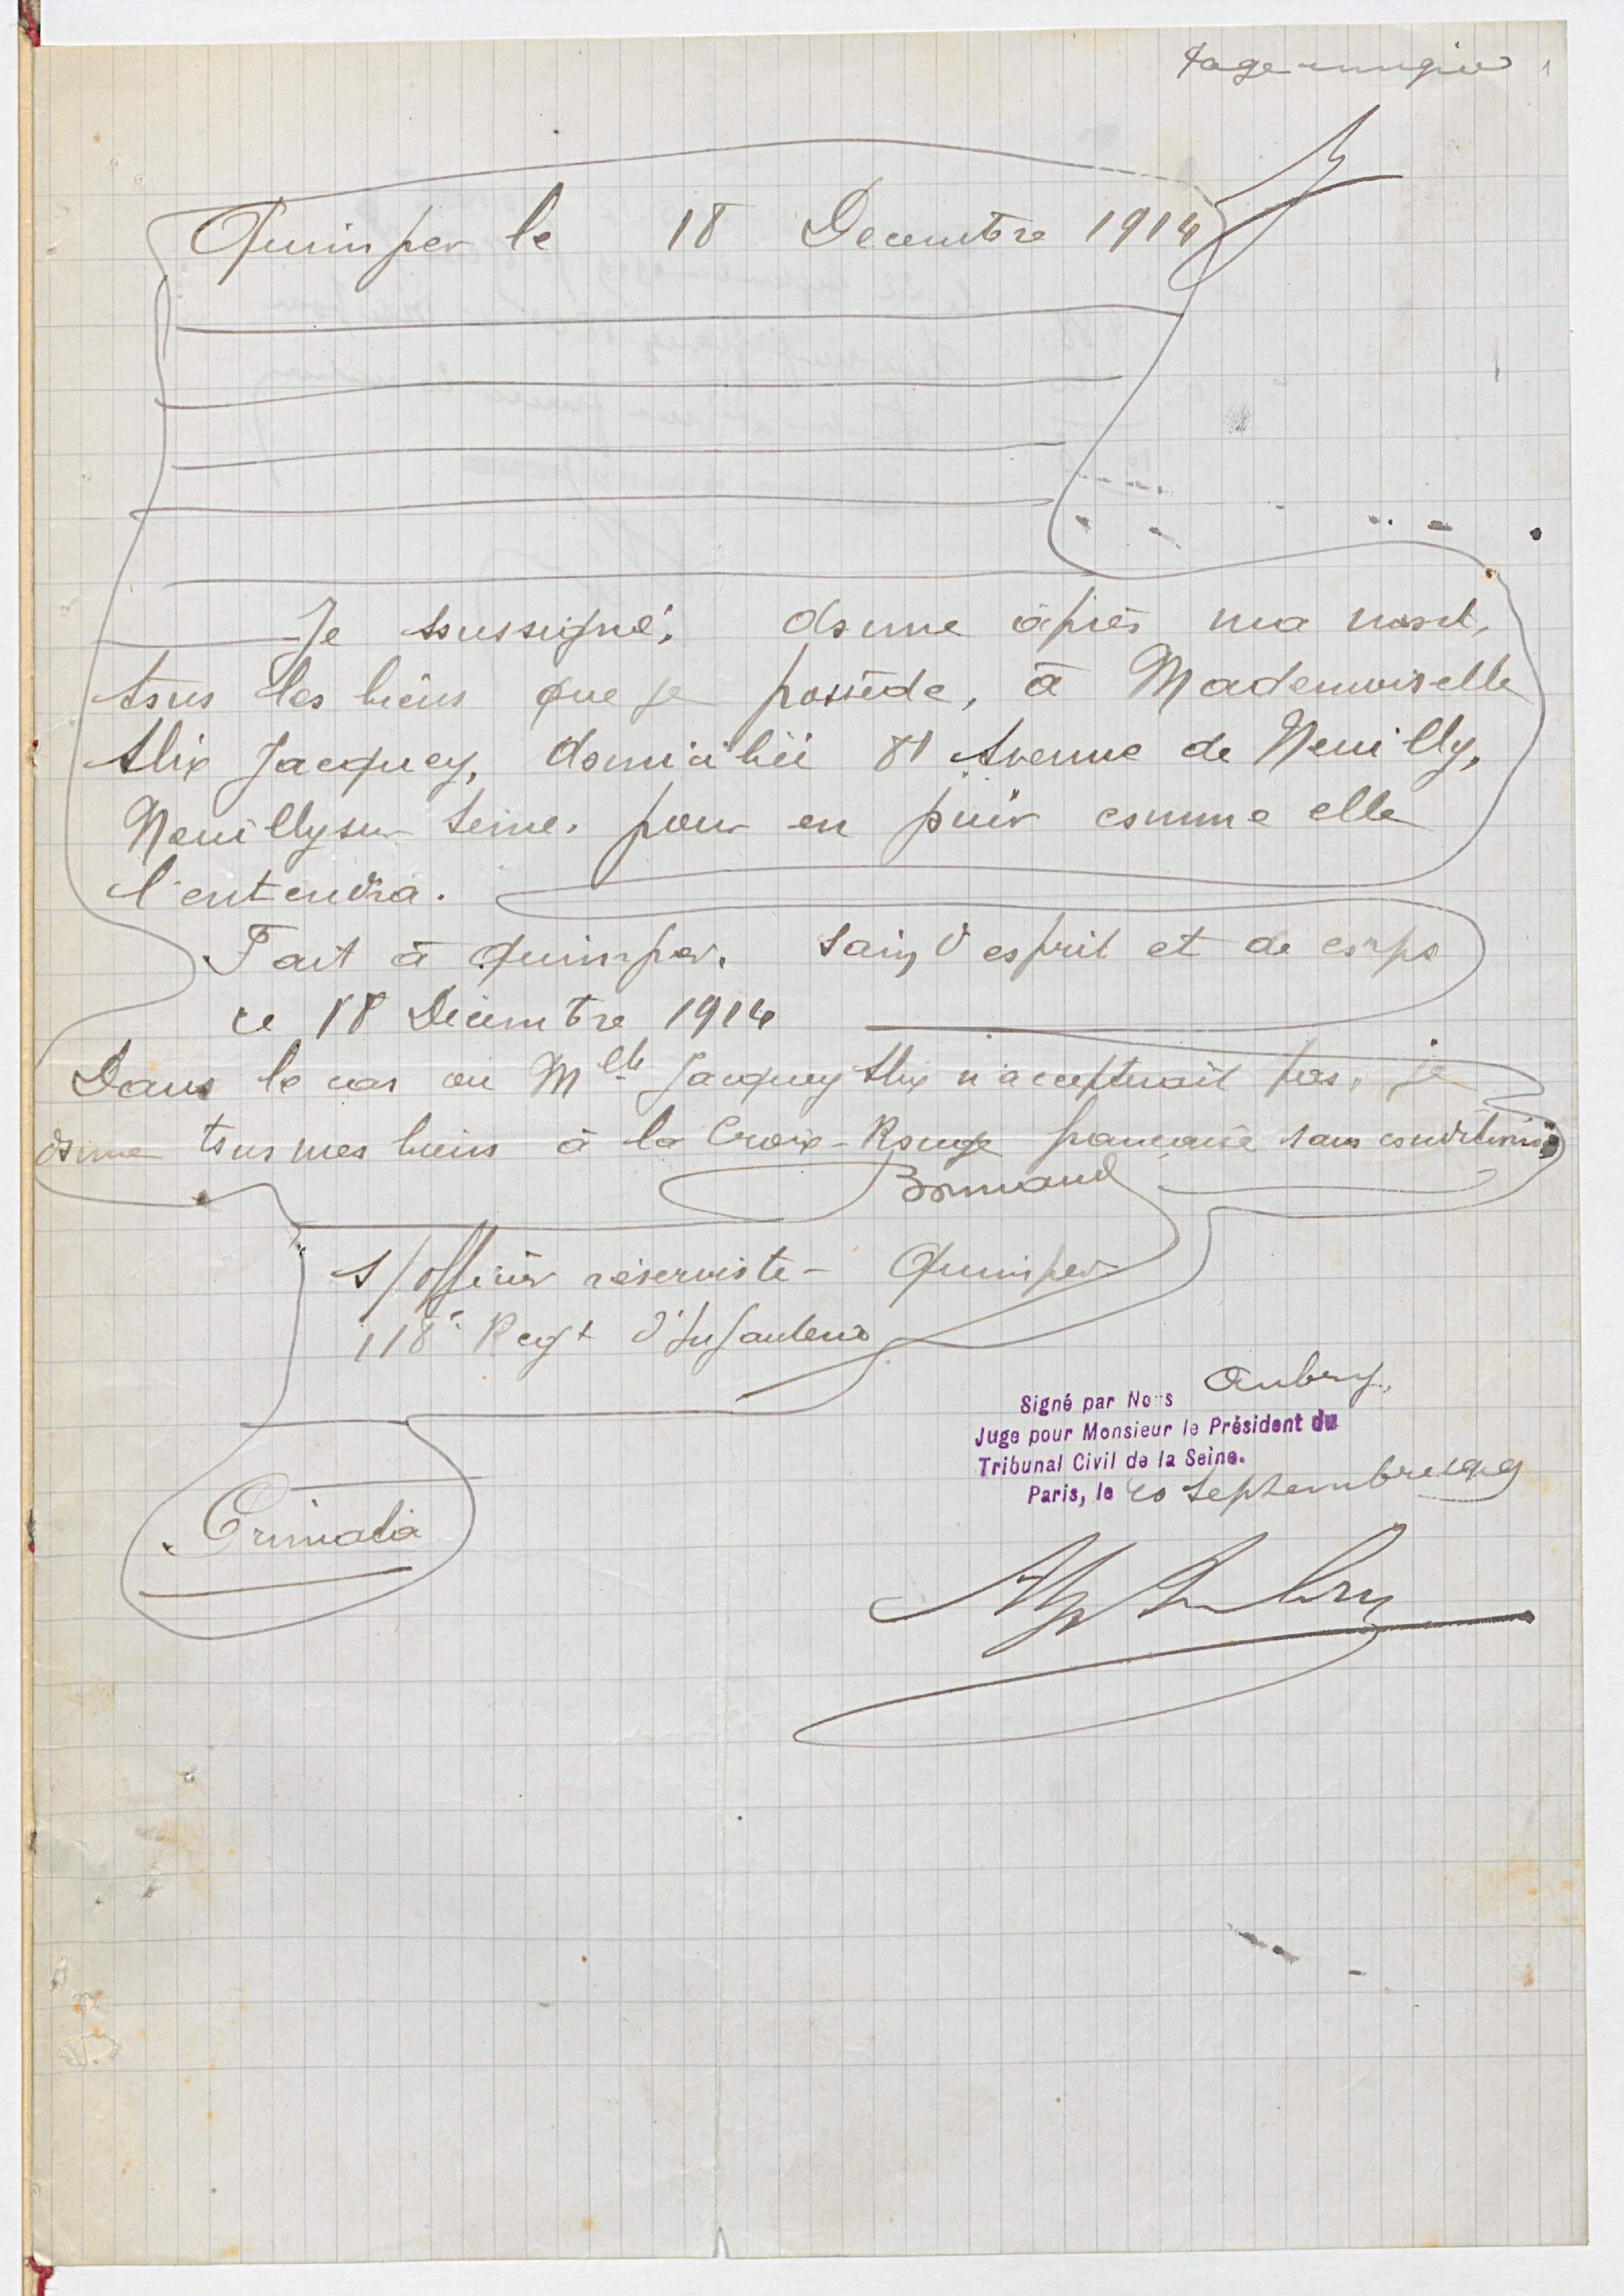 Page unique
Quimper le 18 Decembre 1914
Je soussigné, donne après ma mort,
tous les biens que je possède, à Mademoiselle
Alix Jacquey, domiciliée 81 Avenue de Neuilly,
Neuilly sur Seine. pour en jouir comme elle
l'entendra.
Fait à Quimper, sain d'esprit et de corps
ce 18 Décembre 1914
Dans le cas ou Mlle Jacquey Alix n'accepterait pas, je
donne tous mes biens à la Croix-Rouge française sans conditions
s/officier réserviste - Quimper
118e Regt d'Infanterie
Signé par Nous Aubry,
Juge pour Monsieur le Président du
Tribunal Civil de la Seine.
Paris, le septembre 1919